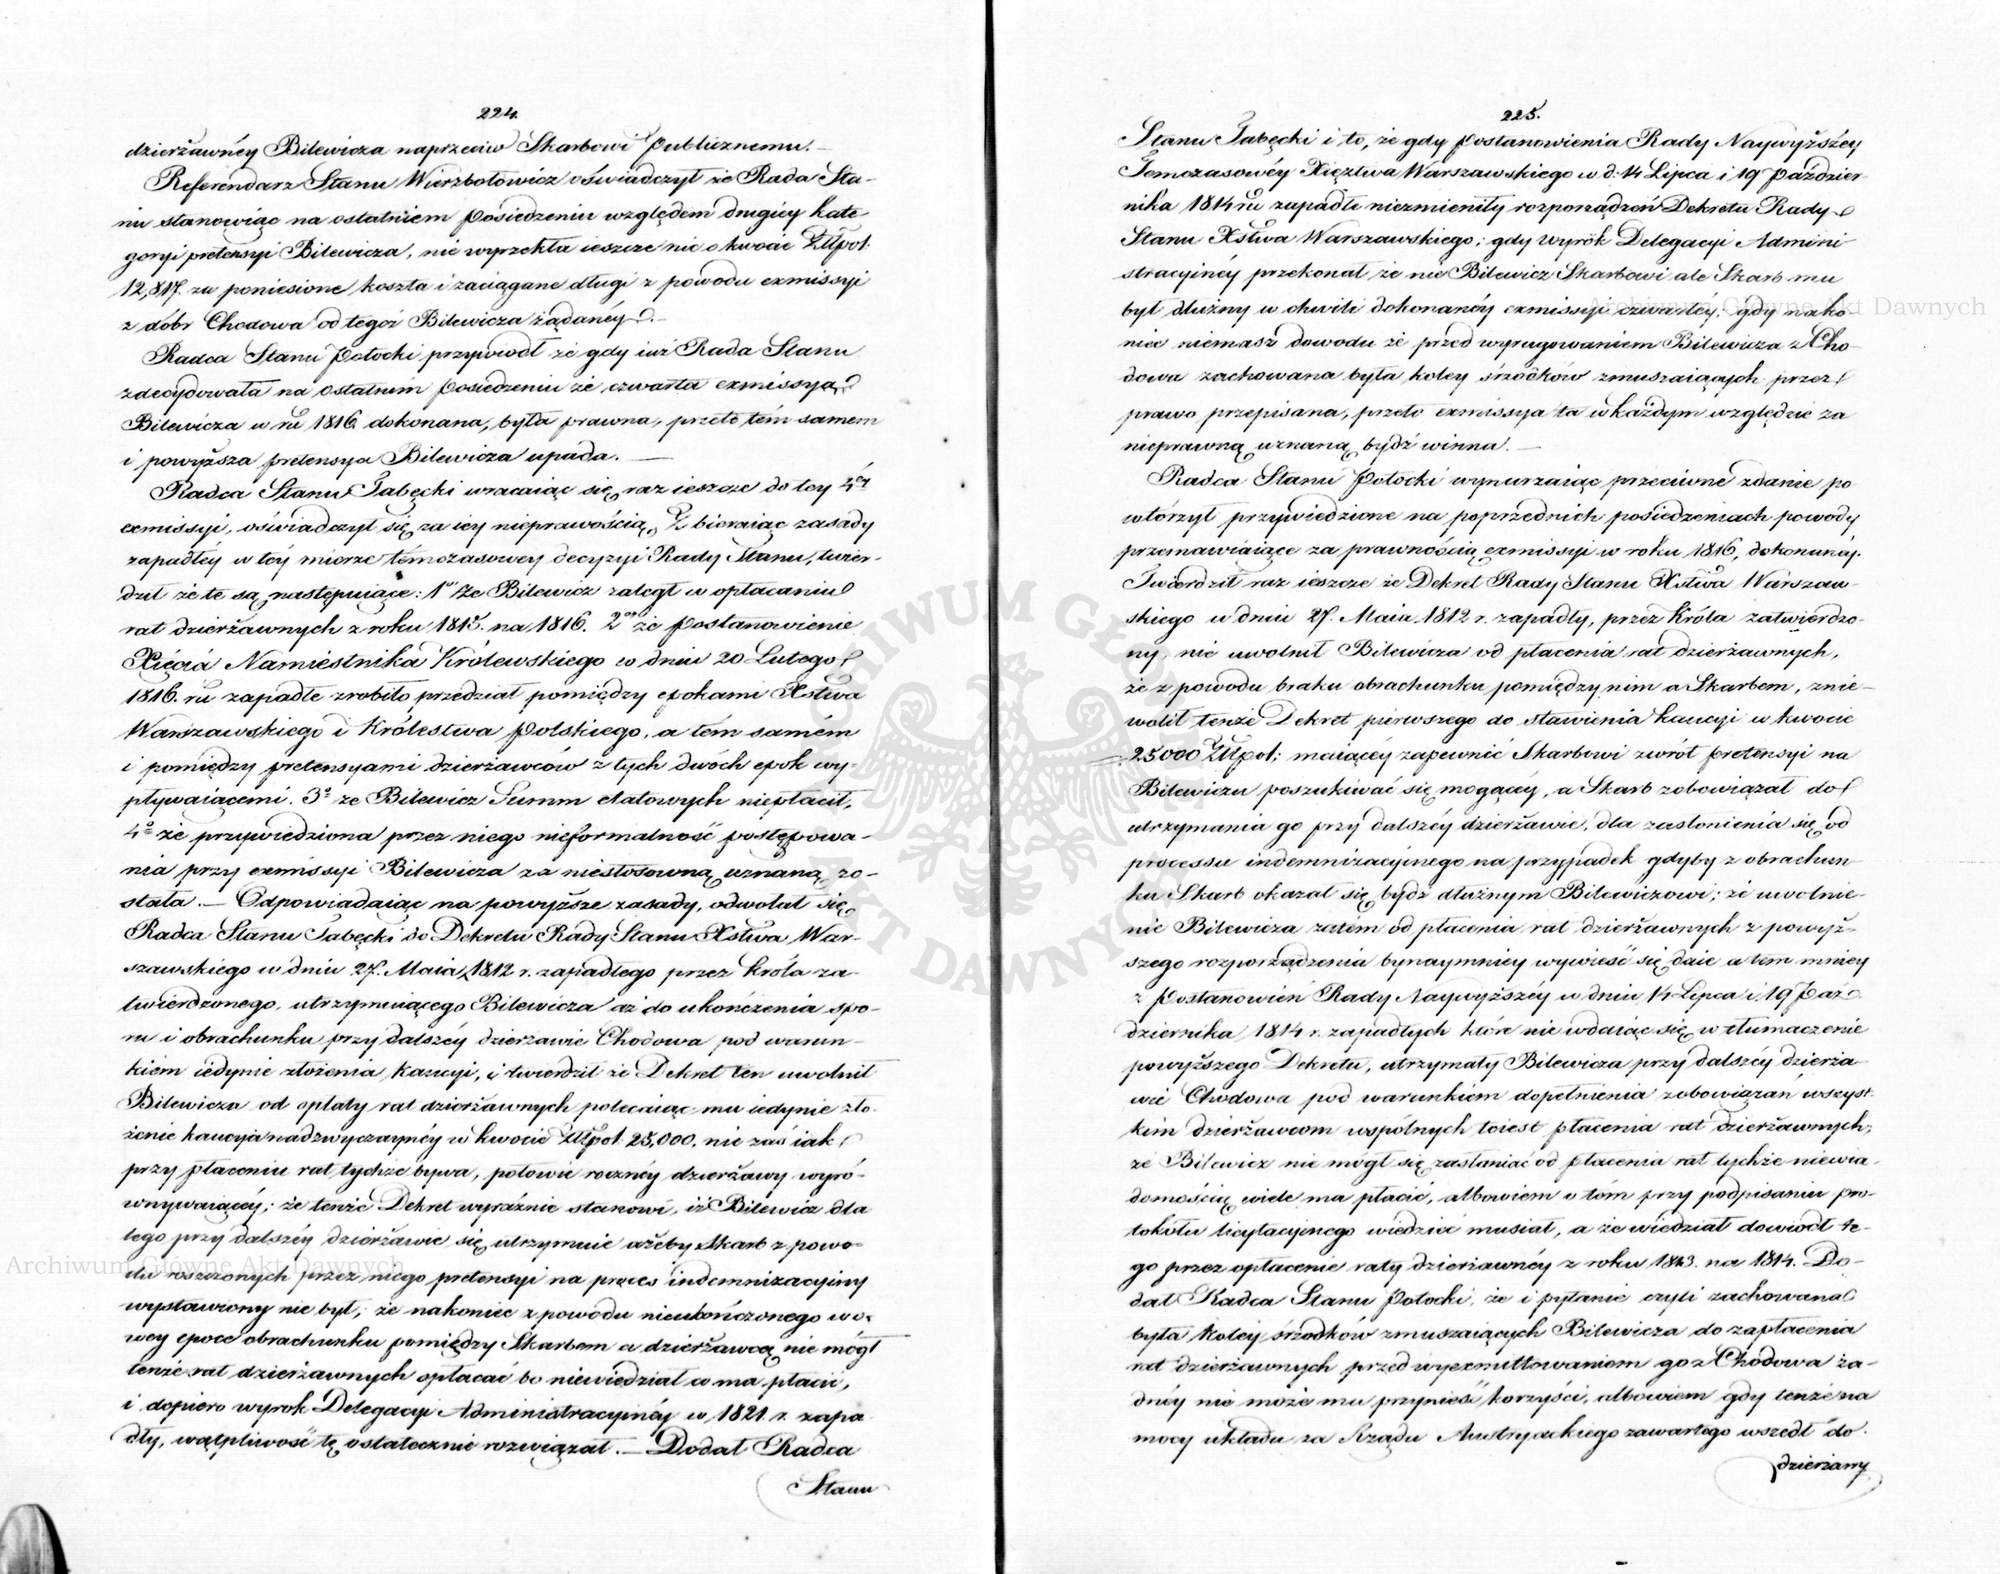 224.
dzierżawnéy Bilewicza naprzeciw Skarbowi Publicznemu. —
Referendarz Stanu Wierzbołowicz oświadczył że Rada Sta-
nu stanowiąc na ostatniem Posiedzeniu względem drugiéy kate-
goryi pretensyi Bilewicza, nie wyrzekła ieszcze nic o kwocie Złlpol.
12,817. za poniesione koszta i zaciągane długi z powodu exmissyi
z dóbr Chodowa od tegoż Bilewicza żądanéy. —
Radca Stanu Potocki przywiódł że gdy iuż Rada Stanu
zdecydowała na ostatnim Posiedzeniu że czwarta exmissya
Bilewicza w ru 1816 dokonana, była prawna, przeto tém samem
i powyższa pretensya Bilewicza upada. —
Radca Stanu Tabęcki wracaiąc się raz ieszcze do tey 4éy
exmissyi, oświadczył się za iey nieprawością, Zbieraiąc zasady
zapadłéy w téy mierze témczasowey decyzyi Rady Stanu, twier-
dził że te są następuiące: 1o Że Bilewicz zaległ w opłacaniu
rat dzierżawnych z roku 1815. na 1816. 2o że Postanowienie
Xięcia Namiestnika Królewskiego w dniu 20 Lutego
1816. ru zapadłe zrobiło przedział pomiędzy epokami Xstwa
Warszawskiego i Królestwa Polskiego, a tém samém
i pomiędzy pretensyami dzierżawców z tych dwóch epok wy-
pływaiącemi. 3o że Bilewicz Summ etatowych niepłacił,
4o że przywiedziona przez niego nieformalność postępowa-
nia przy exmissyi Bilewicza za niestosowną uznaną zo-
stała. — Odpowiadaiąc na powyższe zasady, odwołał się
Radca Stanu Tabęcki do Dekretu Rady Stanu Xstwa War-
szawskiego w dniu 27. Maia 1812 r. zapadłego przez Króla za-
twierdzonego, utrzymuiącego Bilewicza aż do ukończenia spo-
ru i obrachunku przy dalszéy dzierżawie Chodowa pod warun-
kiem iedynie złożenia kaucyi, i twierdził że Dekret ten uwolnił
Bilewicza od opłaty rat dzierżawnych polecaiąc mu iedynie zło-
żenie kaucyi nadzwyczaynéy w kwocie Złlpol. 25,000. nie zaś iak
przy płaceniu rat tychże bywa, połowie rocznéy dzierżawy wyró-
wnywaiącéy; że tenże Dekret wyraźnie stanowi, iż Bilewicz dla
tego przy dalszéy dzierżawie się utrzymuie ażeby Skarb z powo-
du roszczonych przez niego pretensyi na proces indemnizacyiny
wystawiony nie był; że nakoniec z powodu nieukończonego wo-
wey epoce obrachunku pomiędzy Skarbem a dzierżawcą nie mógł
tenże rat dzierżawnych opłacać bo niewiedział co ma płacić,
i dopiero wyrok Delegacyi Administracyinéy w 1821. r. zapa-
dły, wątpliwość tę ostatecznie rozwiązał. — Dodał Radca
Stanu
225.
Stanu Tabęcki i to, że gdy Postanowienia Rady Naywyższéy
Temczasowéy Xięztwa Warszawskiego w d. 14 Lipca i 19 Paździer-
nika 1814 ru zapadłe niezmieniły rozporządzeń Dekretu Rady
Stanu Xstwa Warszawskiego; gdy wyrok Delegacyi Admini-
stracyinéy przekonał że nie Bilewicz Skarbowi ale Skarb mu
był dłużny w chwili dokonanéy exmissyi czwartéy; gdy nako-
niec niemasz dowodu że przed wyrugowaniem Bilewicza z Cho-
dowa zachowana była koley śrzodków zmuszaiących przez
prawo przepisana, przeto exmissya ta w każdym względzie za
nieprawną uznaną bydź winna. —
Radca Stanu Potocki wynurzaiąc przeciwne zdanie po-
wtórzył przywiedzione na poprzednich posiedzeniach powody
przemawiaiące za prawnością exmissyi w roku 1816, dokonanéy.
Twierdził raz ieszcze że Dekret Rady Stanu Xstwa Warszaw-
skiego w dniu 27. Maia 1812 r. zapadły, przez Króla zatwierdzo-
ny, nie uwolnił Bilewicza od płacenia rat dzierżawnych,
że z powodu braku obrachunku pomiędzy nim a Skarbem, znie-
wolił tenże Dekret pierwszego do stawienia kaucyi w kwocie
25000 Złlpol; maiącéy zapewnić Skarbowi zwrót pretensyi na
Bilewiczu poszukiwać się mogącéy, a Skarb zobowiązał do
utrzymania go przy dalszéy dzierżawie, dla zasłonienia się od
processu indemnizacyjnego na przypadek gdyby z obrachun-
ku Skarb okazał się bydź dłużnym Bilewiczowi; że uwolnie-
nie Bilewicza zatém od płacenia rat dzierżawnych z powyż-
szego rozporządzenia bynaymniey wywieść się daie a tém mniey
z Postanowień Rady Naywyższéy w dniu 14 Lipca i 19 Paź-
dziernika 1814 r. zapadłych które nie wdaiąc się w tłumaczenie
powyższego Dekretu, utrzymały Bilewicza przy dalszéy dzierża-
wie Chodowa pod warunkiem dopełnienia zobowiązań wszyst-
kim dzierżawcom wspólnych toiest płacenia rat dzierżawnych;
że Bilewicz nie mógł się zasłaniać od płacenia rat tychże niewia-
domością wiele ma płacić, albowiem o tém przy podpisaniu pro-
tokółu licytacyjnego wiedzieć musiał, a że wiedział dowiódł te-
go przez opłacenie raty dzierżawnéy z roku 1813. na 1814. Do-
dał Radca Stanu Potocki, że i pytanie czyli zachowana
była koley śrzodków zmuszaiących Bilewicza do zapłacenia
rat dzierżawnych przed wyexmittowaniem go z Chodowa ża-
dnéy nie może mu przynieść korzyści, albowiem gdy tenże na
mocy układu za Rządu Austryackiego zawartego wszedł do
dzierżawy
Archiwum Główne Akt Dawnych
Archiwum Główne Akt Dawnych
ARCHIWUM GŁÓWNE AKT DAWNYCH